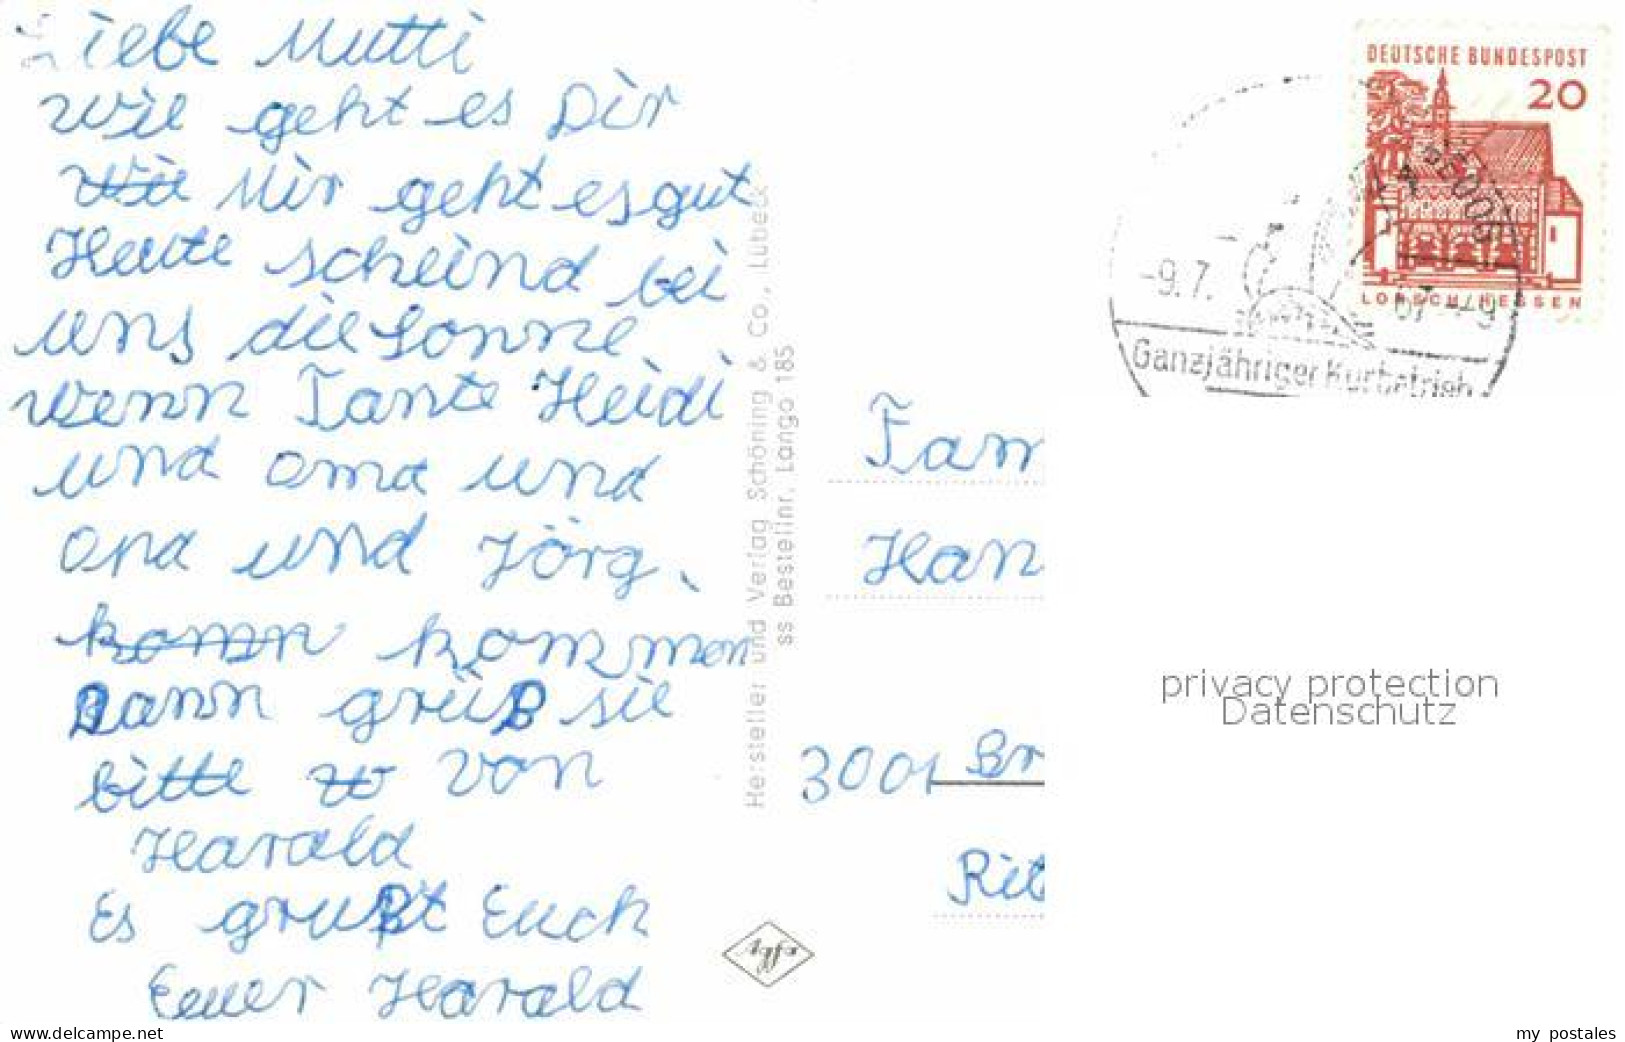 Liebe Mutti
wie geht es Dir
wie Mir geht es gut
Heute scheind bei
uns die Sonne
wenn Tante Heidi
und oma und
opa und Jörg.
komm kommen
Dann grüß sie
bitte von
Harald
Es grußt Euch
Euer Harald
Hersteller und Verlag Schöning & Co., Lübeck
ss Bestellnr. Lango 185
DEUTSCHE BUNDESPOST
20
LORSCH/HESSEN
-9.7. 67 -9
Ganzjähriger Kurbetrieb
Fam
Han
3001 Br
Rit
privacy protection
Datenschutz
www.delcampe.net
my_postales